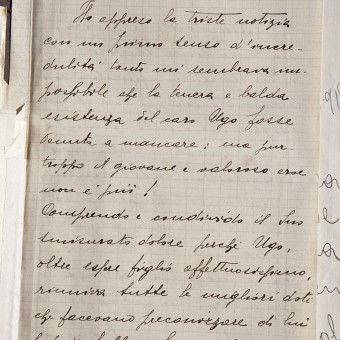 Ho appreso la triste notizia
con un primo senso d'incre-
dulità tanto mi sembrava im-
possibile che la tenera e balda
esistenza del caro Ugo fosse
venuta a mancare; ma pur
troppo il giovane e valoroso eroe
non è più!
Comprendo e condivido il Suo
smisurato dolore perché Ugo,
oltre essere figlio affettuosissimo,
riuniva tutte le migliori doti
che facevano preconizzare di lui